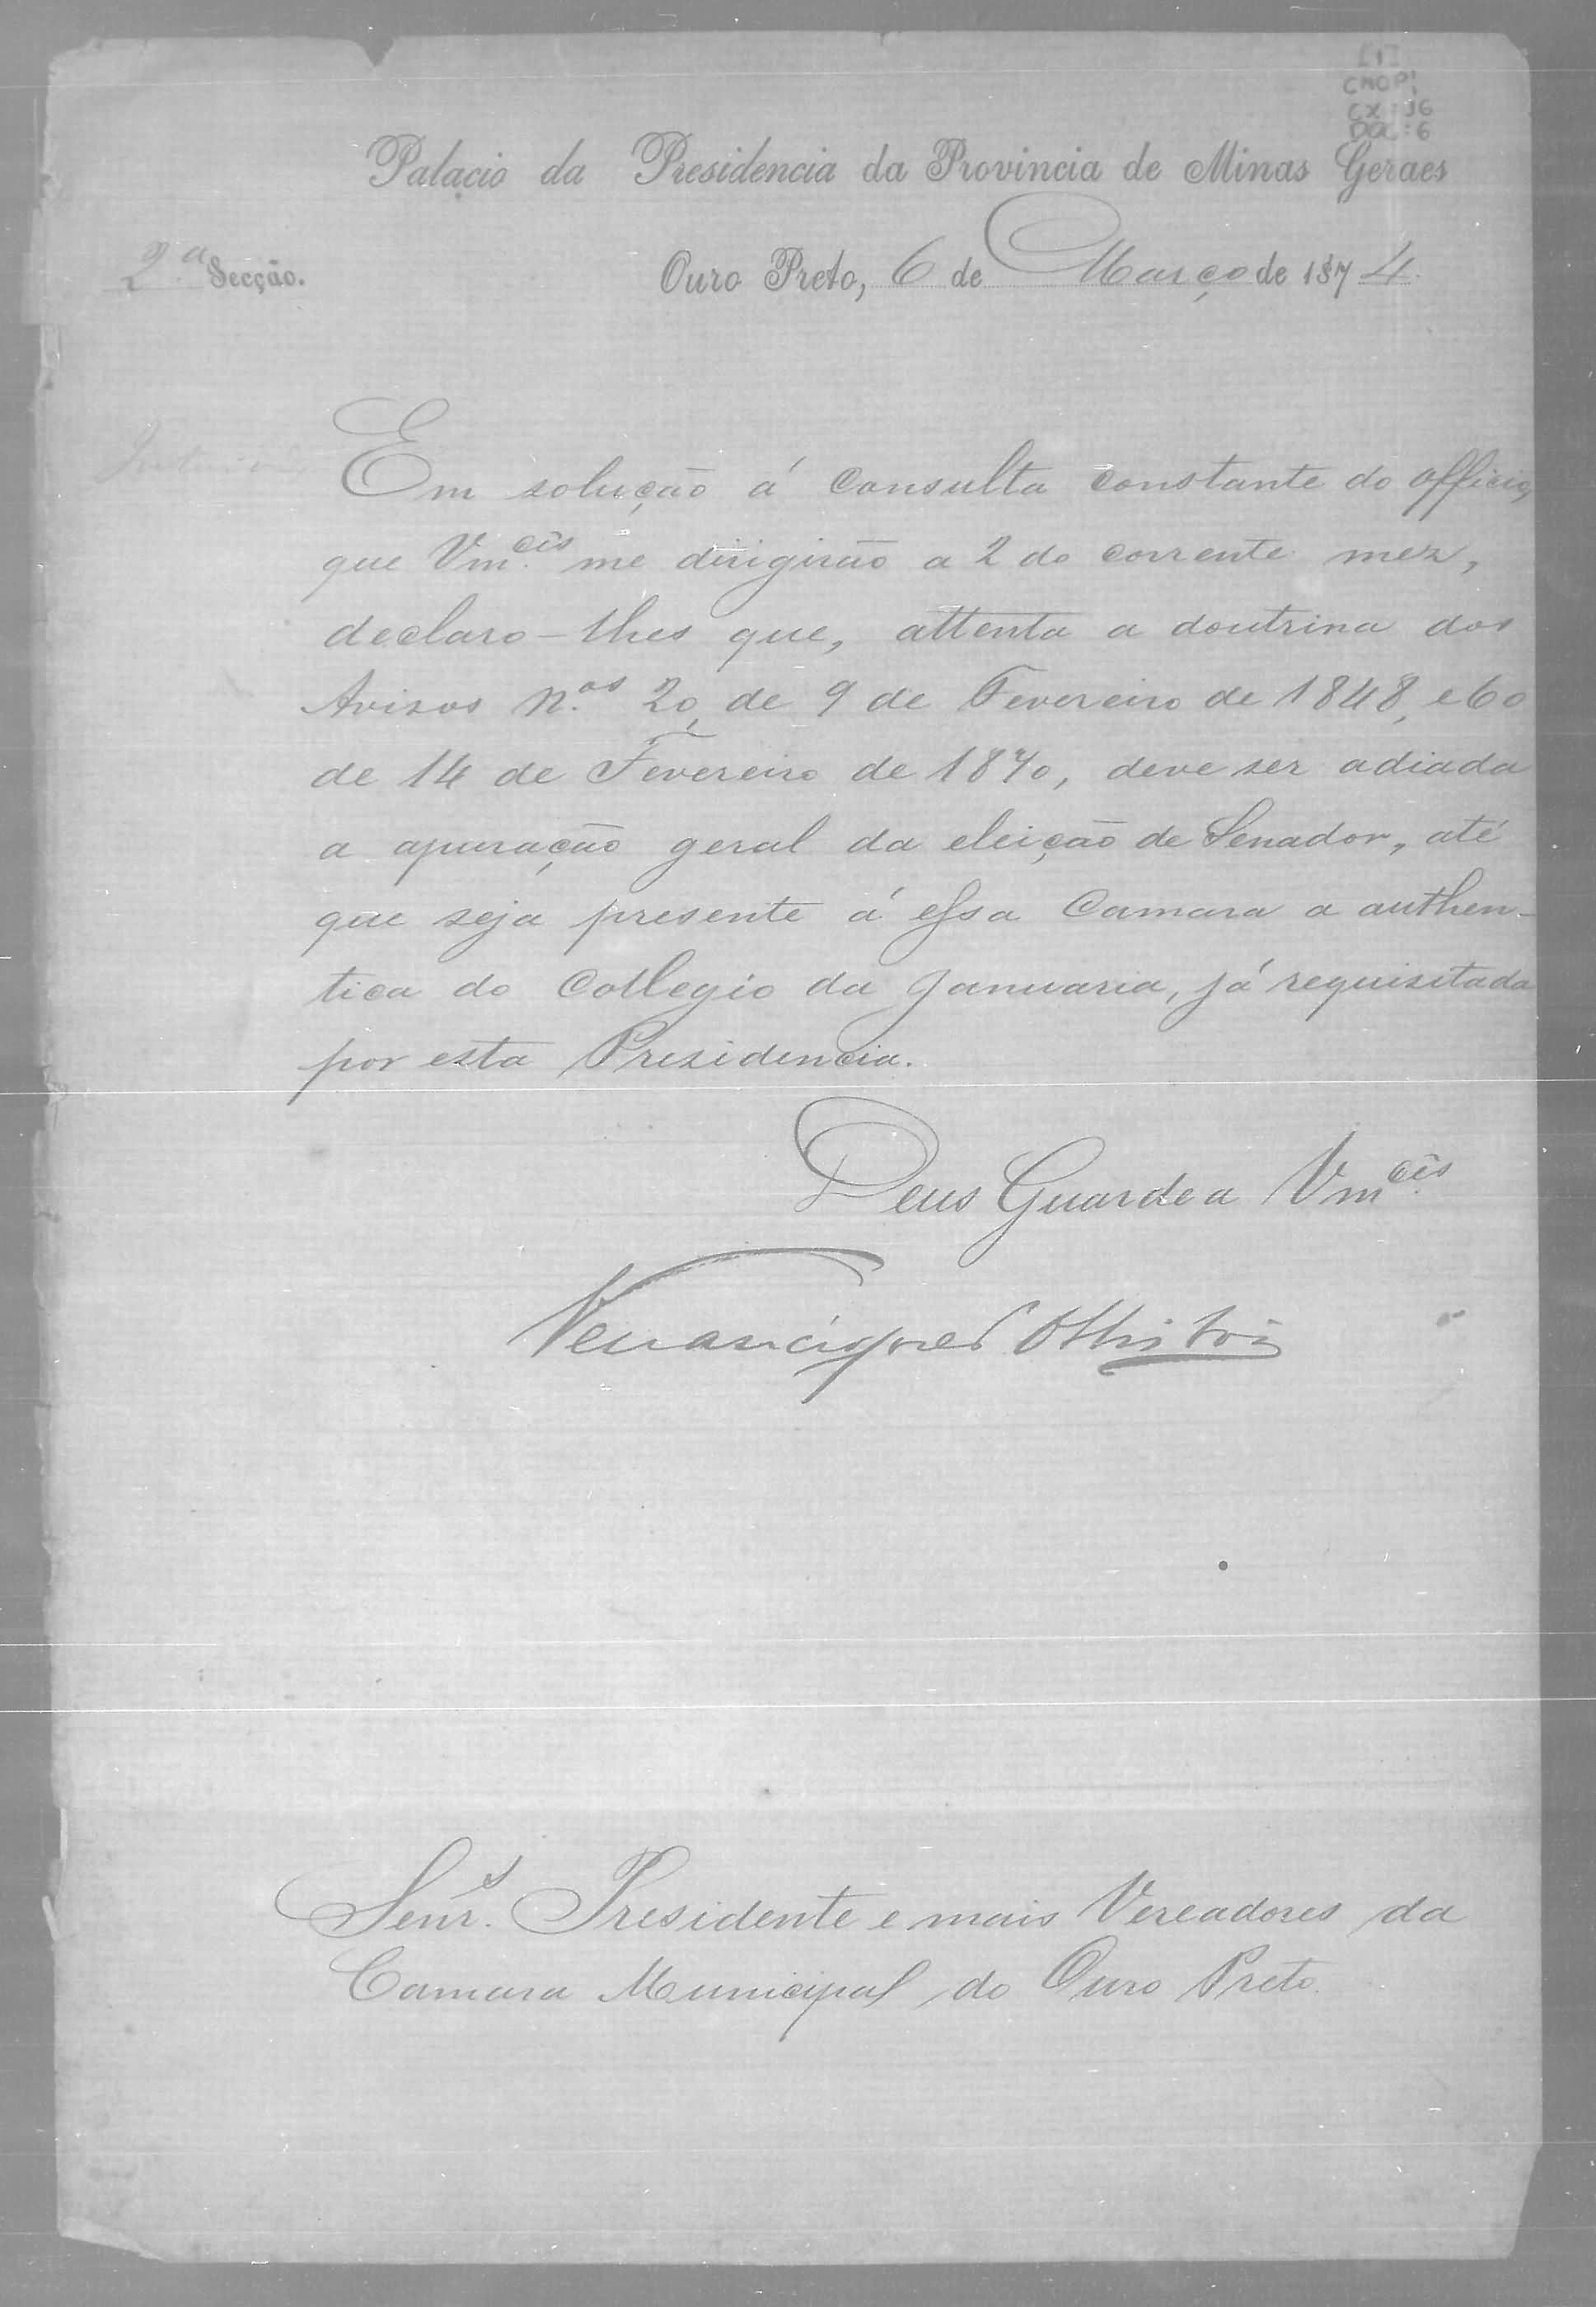 [1]
CMOP!
CX: 16
DOC: 6
Palacio da Presidencia da Provincia de Minas Geraes
2.ª Secção.
Ouro Preto, 6 de Março de 1874.
Em solução á consulta constante do officio,
que Vm.cês me dirigirão a 2 do corrente mez,
declaro-lhes que, attenta a doutrina dos
Avisos N.os 20, de 9 de Fevereiro de 1848, e 60
de 14 de Fevereiro de 1870, deve ser adiada
a apuração geral da eleição de Senador, até
que seja presente á essa Camara a authen-
tica do Collegio da Januaria, já requisitada
por esta Presidencia.
Deus Guarde a Vm.cês
Senr.s Presidente e mais Vereadores da
Camara Municipal do Ouro Preto.